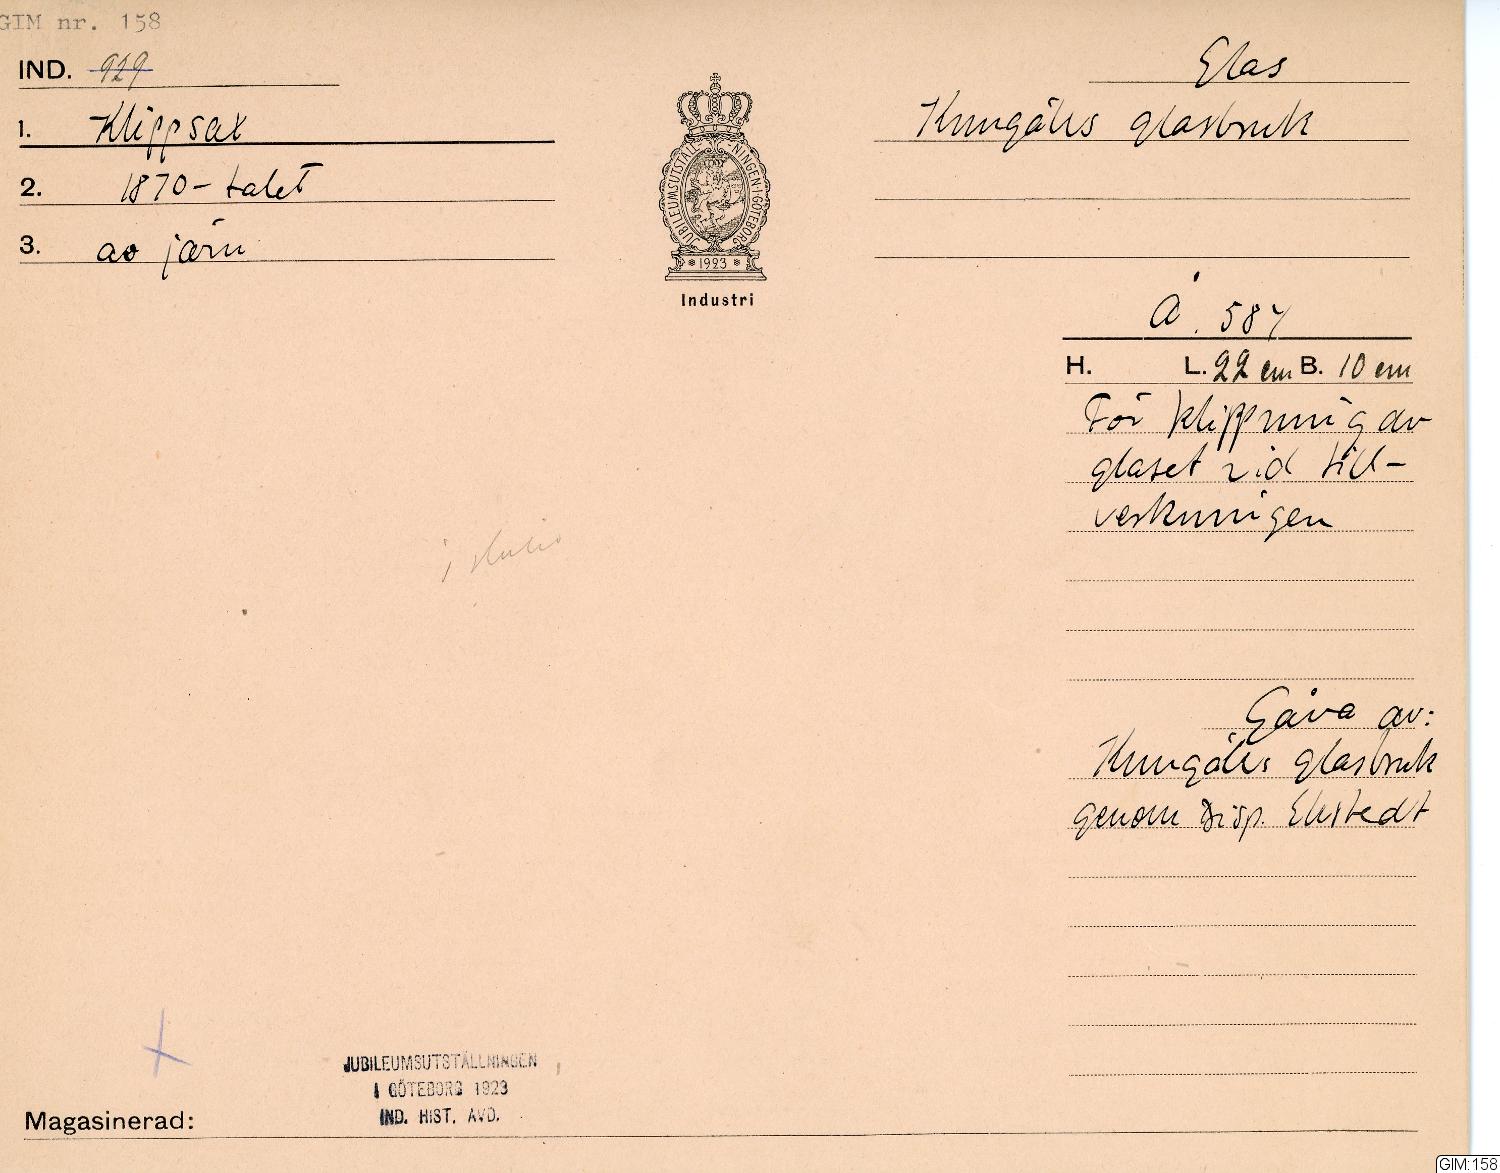 GIM nr. 158
IND. 929
1. Klippsax
2. 1870-talet
3. av järn
JUBILEUMSUTSTÄLLNINGEN·I·GÖTEBORG
* 1923 *
Industri
Glas
Kungälvs glasbruk
Å. 587
H. L. 22 cm B. 10 cm
För klippning av
glaset vid till-
verkningen
i
Gåva av:
Kungälvs glasbruk
genom Disp. Ekstedt
JUBILEUMSUTSTÄLLNINGEN
I GÖTEBORG 1923
IND. HIST. AVD.
Magasinerad:
GIM:158